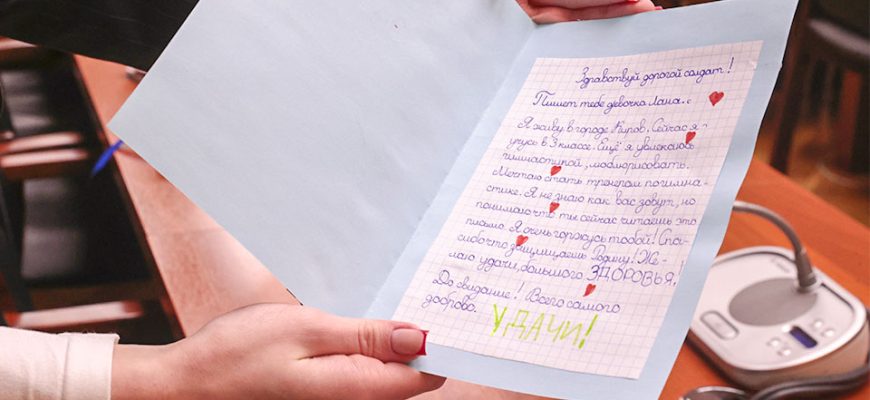 Здравствуй дорогой солдат!
Пишет тебе девочка Лана.
Я живу в городе Киров. Сейчас я
учусь в 3 классе. Ещё я увлекаюсь
гимнастикой, люблю рисовать.
Мечтаю стать тренером по гимна-
стике. Я не знаю как вас зовут, но
понимаю что ты сейчас читаешь это
письмо. Я очень горжусь тобой! Спа-
сибо что защищаешь Родину! Же-
лаю удачи, большого ЗДОРОВЬЯ!
До свидание! Всего самого
доброво.
УДАЧИ!